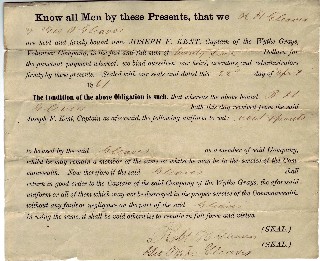 Know all Men by these Presents, that we R H Cleaves
& Geo A Cleaves
are held and firmly bound unto JOSEPH F. KENT, Captain of the Wythe Grays,
Volunteer Company, in the just and full sum of Twenty Five Dollars, for
the payment whereof, we bind ourselves, our heirs, executors and administrators
firmly by these presents. Sealed with our seals and dated this 23 day of April
1861
The condition of the above Obligation is such, that whereas the above bound R H
Cleaves hath this day received from the said
Joseph F. Kent, Captain as aforesaid the following uniform to wit: coat & pants
to be used by the said Cleaves as a member of said Company,
whilst he may remain a member of the same or while he may be in the service of the Com-
monwealth. Now therefore if the said Cleaves shall
return in good order to the Captain of the said Company of the Wythe Grays, the aforesaid
uniform or all of them which may not be destroyed in the proper service of the Commonwealth,
without any fault or negligence on the part of the said Cleaves
in using the same, it shall be void otherwise to remain in full force and virtue.
R H Cleaves (SEAL)
Cleaves (SEAL)